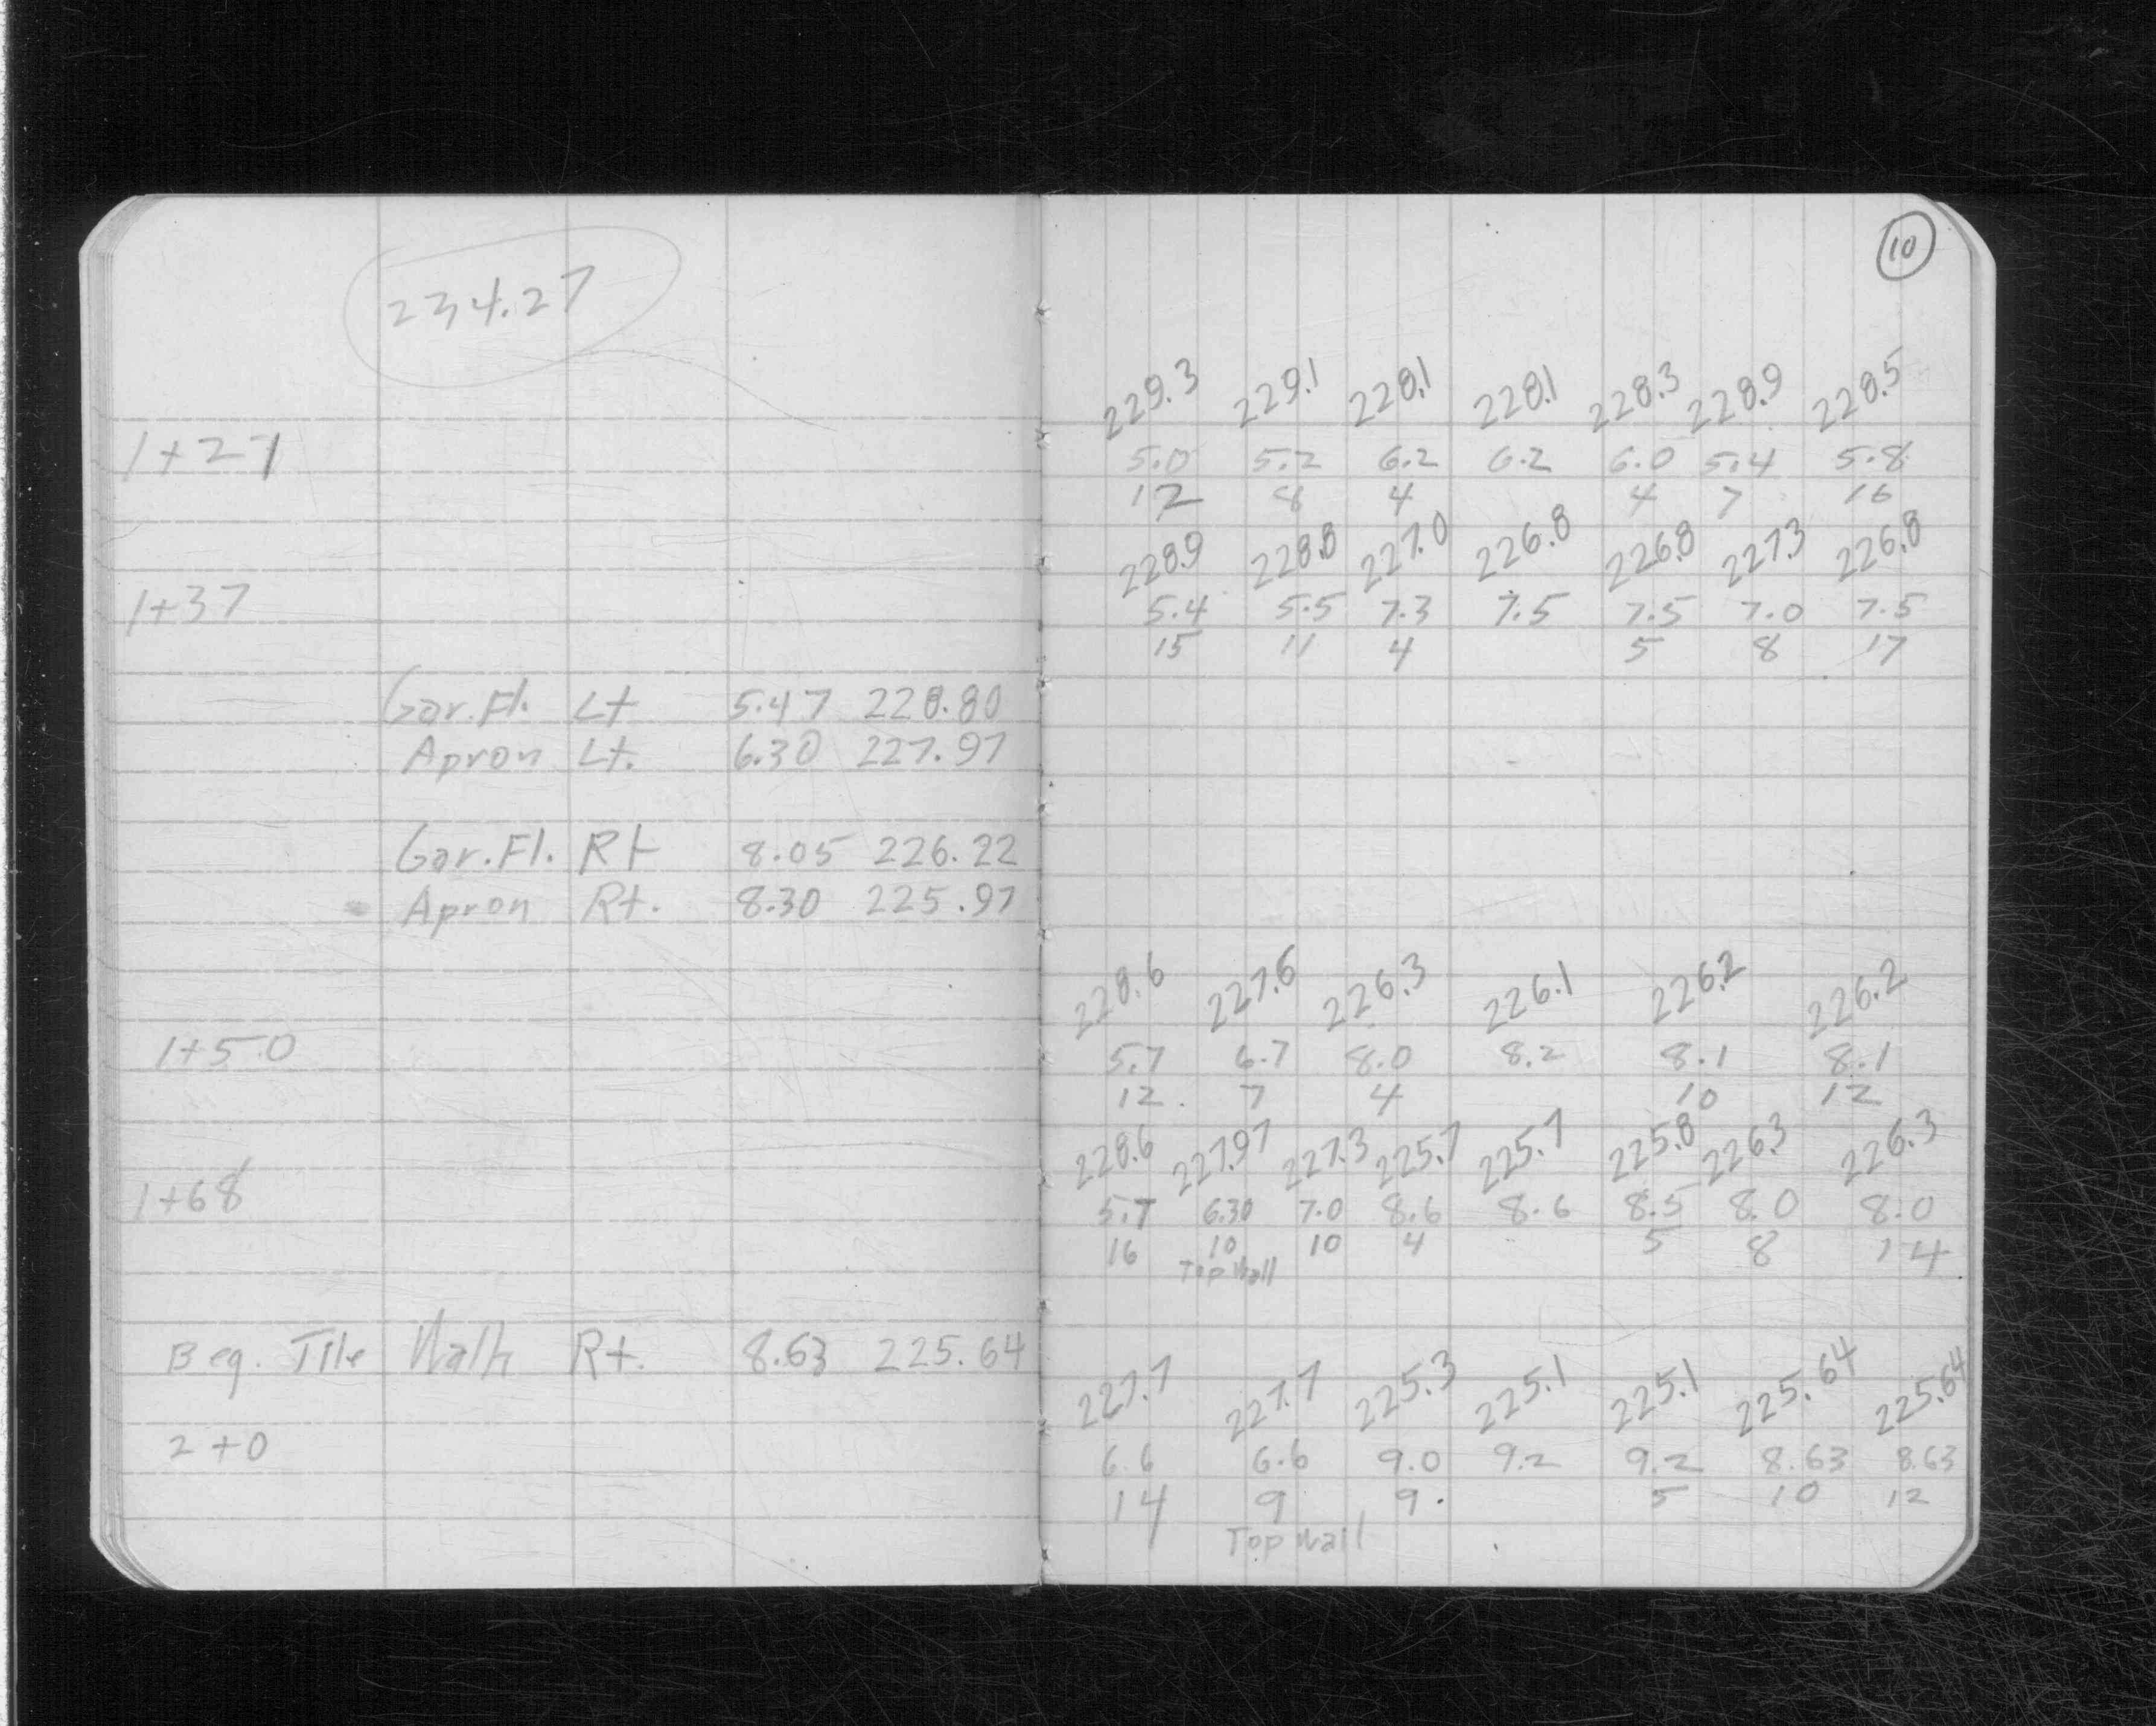 234.27
1+27
1+37
Gar. Fl. Lt 5.47 228.80
Apron Lt. 6.30 227.97
Gar. Fl. Rt 8.05 226.22
Apron Rt. 8.30 225.97
1+50
1+68
Beg. Tile Walk Rt. 8.63 225.64
2+0
10
229.3 229.1 228.1 228.1 228.3 228.9 228.5
5.0 5.2 6.2 6.2 6.0 5.4 5.8
12 8 4 4 7 16
228.9 228.8 227.0 226.8 226.8 227.3 226.8
5.4 5.5 7.3 7.5 7.5 7.0 7.5
15 11 4 5 8 17
228.6 227.6 226.3 226.1 226.2 226.2
5.7 6.7 8.0 8.2 8.1 8.1
12 7 4 10 12
228.6 227.97 227.3 225.7 225.7 225.8 226.3 226.3
5.7 6.30 7.0 8.6 8.6 8.5 8.0 8.0
16 10 10 4 5 8 14
Top Wall
227.7 227.7 225.3 225.1 225.1 225.64 225.64
6.6 6.6 9.0 9.2 9.2 8.63 8.63
14 9 9. 5 10 12
Top Wall